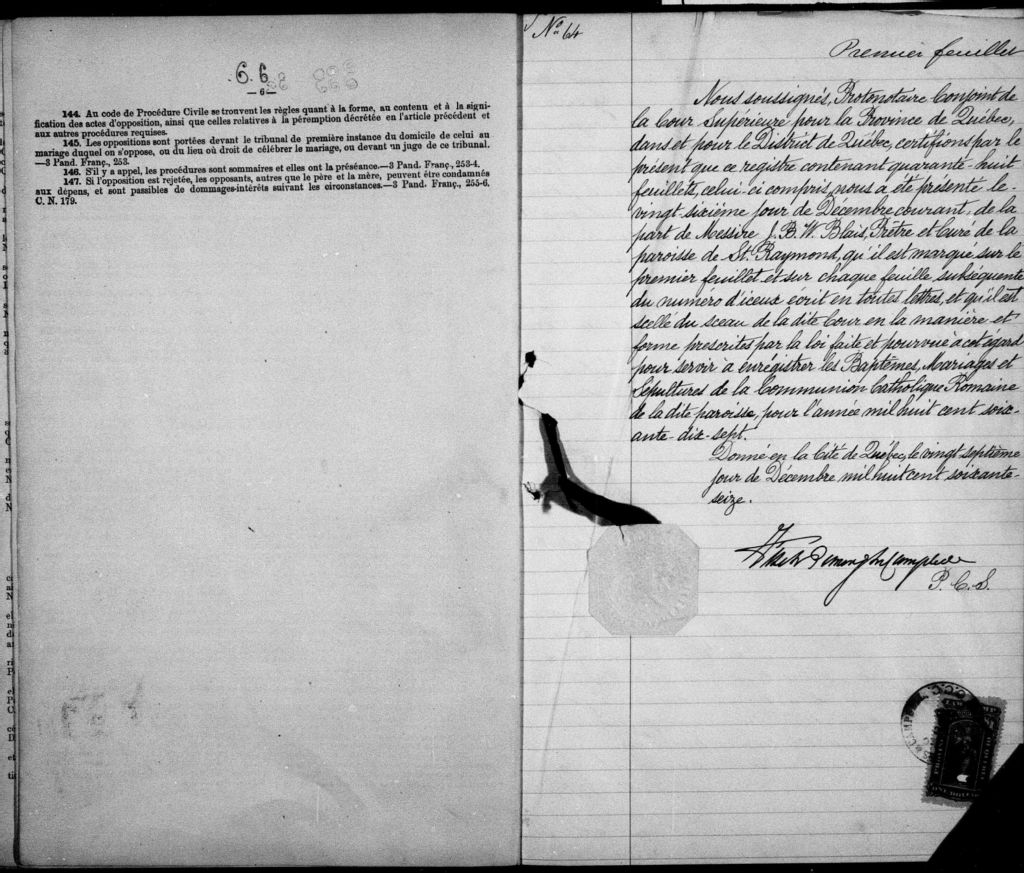 6.6
—6—
144. Au code de Procédure Civile se trouvent les règles quant à la forme, au contenu et à la signi-
fication des actes d'opposition, ainsi que celles relatives à la péremption décrétée en l'article précédent et
aux autres procédures requises.
145. Les oppositions sont portées devant le tribunal de première instance du domicile de celui au
mariage duquel on s'oppose, ou du lieu où droit de célébrer le mariage, ou devant un juge de ce tribunal.
—3 Pand. Franç., 253.
146. S'il y a appel, les procédures sont sommaires et elles ont la préséance.—3 Pand. Franç., 253-4.
147. Si l'opposition est rejetée, les opposants, autres que le père et la mère, peuvent être condamnés
aux dépens, et sont passibles de dommages-intérêts suivant les circonstances.—3 Pand. Franç., 255-6.
C. N. 179.
No 64
Premier feuillet
Nous soussignés, Protonotaire Conjoint de
la Cour Supérieure pour la Province de Québec,
dans et pour le District de Québec, certifions par le
présent que ce registre contenant quarante-huit
feuillets, celui-ci compris, nous a été présenté le
vingt-sixième jour de Décembre courant, de la
part de Messire J. B. W. Blais, Prêtre et Curé de la
paroisse de St. Raymond, qu'il est marqué sur le
premier feuillet et sur chaque feuille subséquente
du numéro d'iceux écrit en toutes lettres, et qu'il est
scellé du sceau de la dite Cour en la manière et
forme prescrites par la loi faite et pourvue à cet égard
pour servir à enrégistrer les Baptêmes, Mariages et
Sépultures de la Communion Catholique Romaine
de la dite paroisse, pour l'année mil huit cent soix-
ante-dix-sept.
Donné en la Cité de Québec, le vingt-septième
jour de Décembre mil huit cent soixante-
seize.
Campbell
P. C. S.